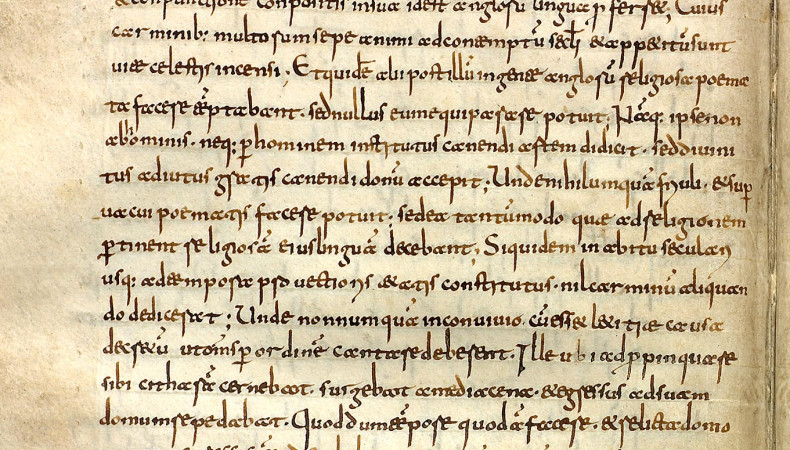 & conpunctione conpositis in sua id est anglorū lingua pferret; Cuius
carminib: multorum sepe animi ad contemptū secli & appetitū sunt
uitae celestis incensi; Et quidē alii post illū in gente anglorū religiosa poema
ta facere tēptabant. sed nullus eum equiparare potuit. Nāq: ipse non
ab hominis. neq: p hominem institutus canendi artem didicit. sed diuini
tus adiutus gratis canendi donū accepit; Unde nihil umquā friuli. & sup
uacui poematis facere potuit; sed ea tantūmodo quae ad religionem
ptinent religiosā eius linguā decebant; Siquidem in abitu seculari
usq: ad tempora prouectioris aetatis constitutus. nil carminū aliquan
do dedicerat; Unde nonnumquā in conuiuio. cū esset letitiae causa
decretū ut oms p ordinē cantare deberent. Ille ubi adppinquare
sibi citharā cernebat. surgebat a media cena. & egressus ad suam
domum repedabat. Quod dum tēpore quodā faceret. & relicta domo